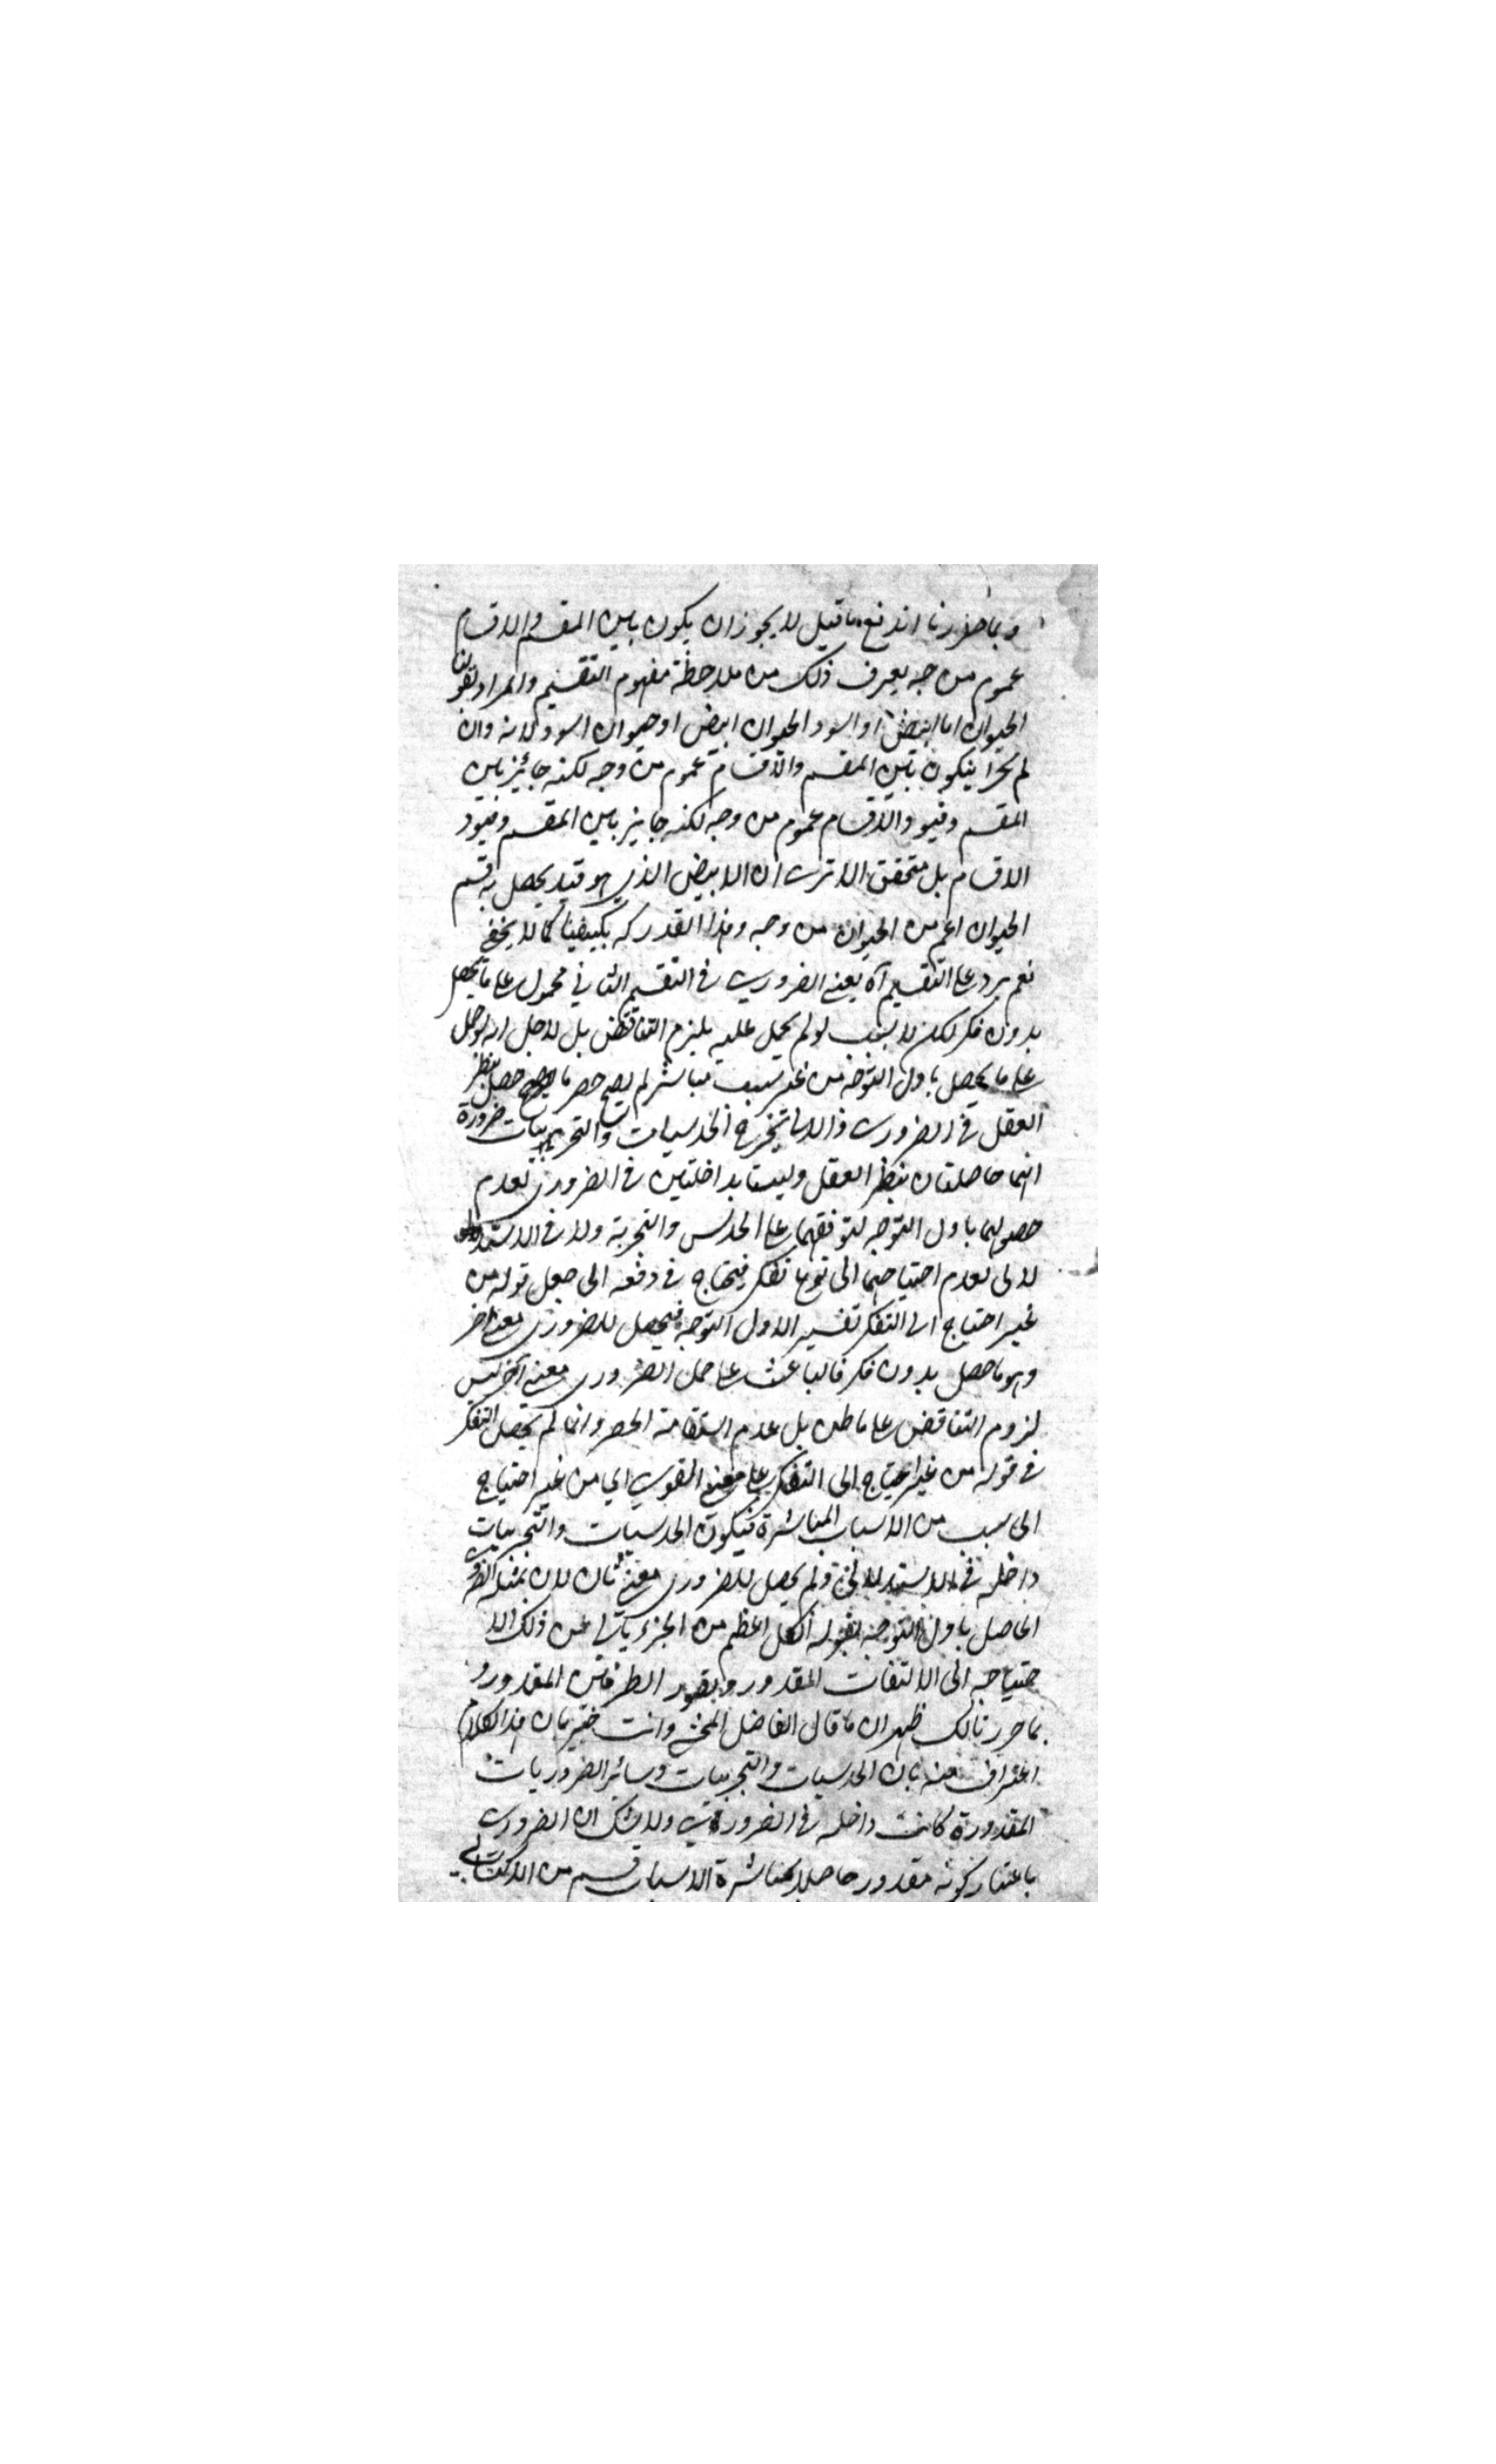 وبما حررنا اندفع ما قيل لا يجوز ان يكون بين المقسم والاقسام
عموم من وجه يعرف ذلك من ملاحظة مفهوم التقسيم والمراد بقولنا
الحيوان اما ابيض او اسود الحيوان ابيض او حيوان اسود لانه وان
لم يجز ان يكون بين المقسم والاقسام عموم من وجه لكنه جائز بين
المقسم وقيود الاقسام عموم من وجه لكنه جائز بين المقسم وقيود
الاقسام بل متحقق الا ترى ان الابيض الذي هو قيد يحصل به قسم
الحيوان اعم من الحيوان من وجه وهذا القدر يكفينا كما لا يخفى
نعم يرد على التقسيم آه يعنى الضروري في التقسيم الثاني محمول على ما يحصل
بدون فكر لكن لا بسبب لو لم يحمل عليه يلزم التناقض بل لاجل انه لو حمل
على ما يحصل باول التوجه من غير سبب مباشر لم يصح حصر ما حصل بنظر
العقل في الضروري والاستدلالي لخرج الحدسيات والتجربيات ضرورة
انهما حاصلتان بنظر العقل وليستا بداخلتين في الضروري لعدم
حصولهما باول التوجه لتوقفهما على الحدس والتجربة ولا في الاستد
لالى لعدم احتياجهما الى نوع تفكر فيحتاج في دفعه الى جعل قوله من
غير احتياج الى التفكر تفسير الاول التوجه فيحصل للضروري معنى آخر
وهو ما حصل بدون فكر فالباعث على حمل الضروري معنى آخر ليس
لزوم التناقض على ما ظن بل عدم استقامة الحصر وانما لم يحمل التفكر
في قوله من غير احتياج الى التفكر على معنى اللغوي اي من غير احتياج
الى سبب من الاسباب المباشرة فيكون الحدسيات والتجربيات
داخلة في الاستدلالي ولم يحصل للضروري معنى ثان لان تمثيله الضروري
الحاصل باول التوجه بقوله الكل اعظم من الجزء يأبى عن ذلك الا
حتياجه الى الالتفات المقدور وتصور الطرفين المقدور و
بما حررنا لك ظهر ان ما قال الفاضل المحشي وانت خبير بان هذا الكلام
اعتراف منه بان الحدسيات والتجربيات وسائر الضروريات
المقدورة كانت داخلة في الضرورة ولا شك ان الضروري
باعتبار كونه مقدور حاصلا بمباشرة الاسباب قسم من الاكتسابي